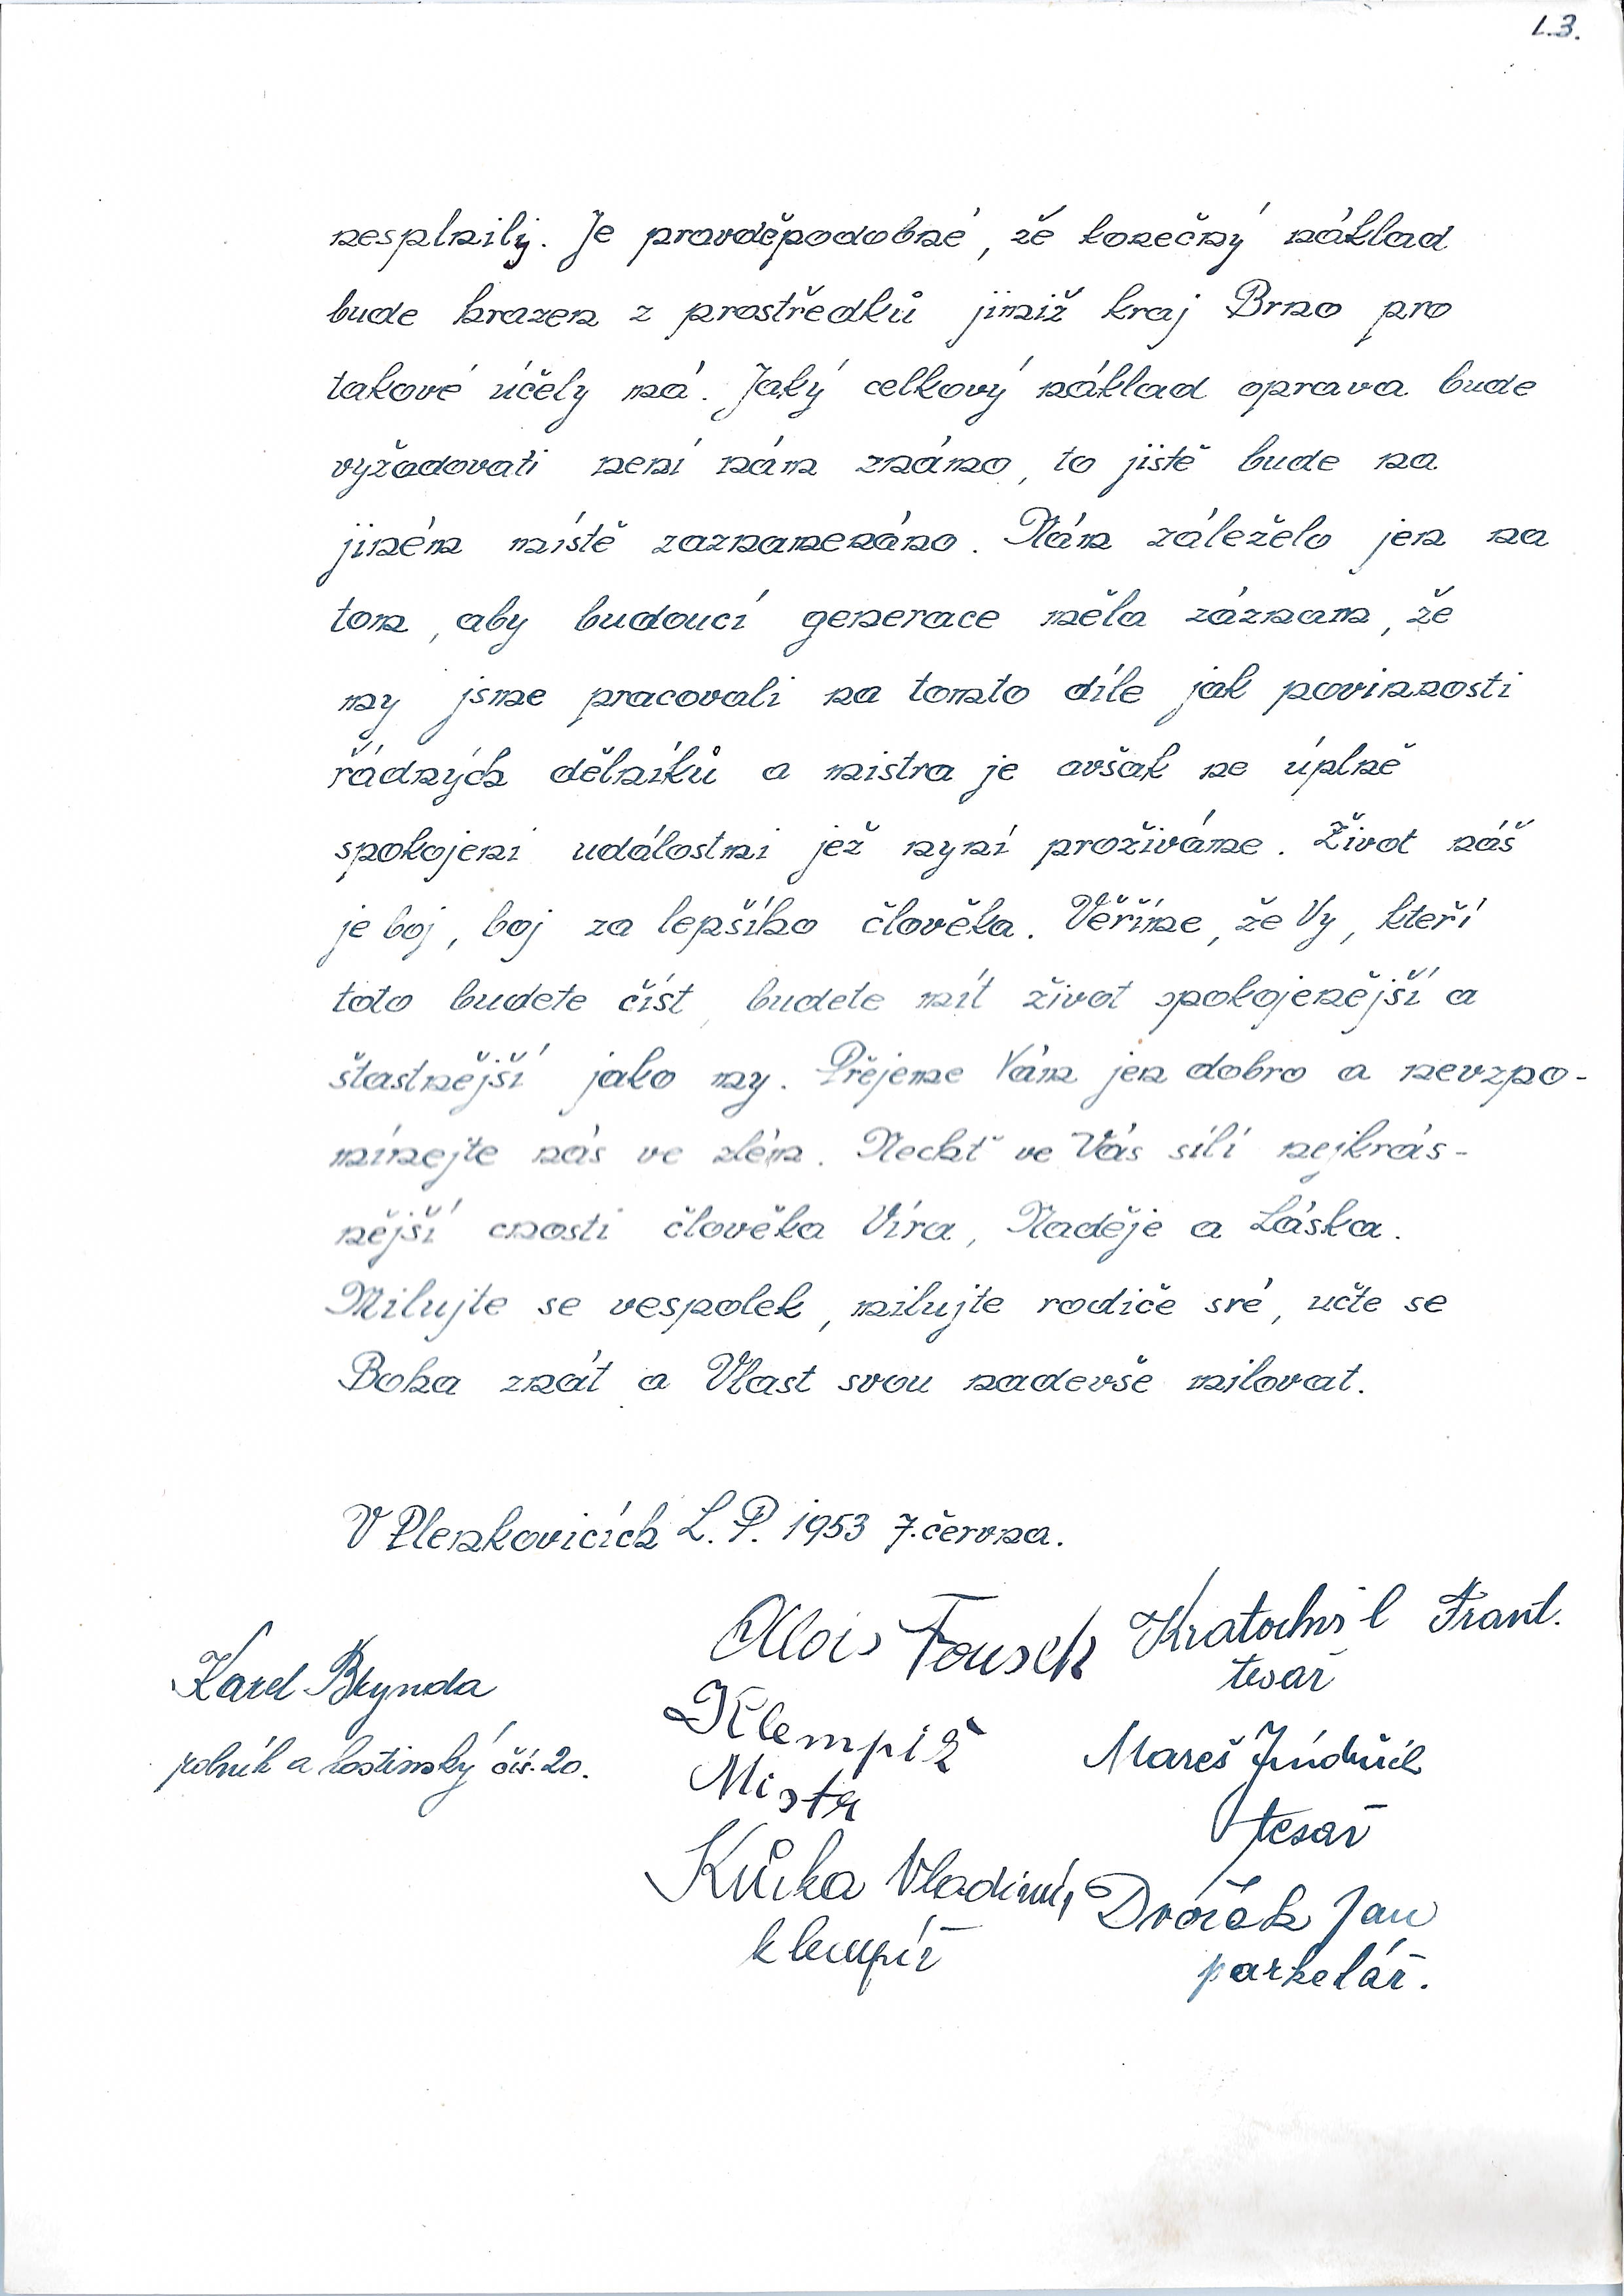 L.3.
nesplnily. Je pravděpodobné, že konečný náklad
bude hrazen z prostředků jimiž kraj Brno pro
takové účely má. Jaký celkový náklad oprava bude
vyžadovati není nám známo, to jistě bude na
jiném místě zaznamenáno. Nám záleželo jen na
tom, aby budoucí generace měla záznam, že
my jsme pracovali na tomto díle jak povinnosti
řádných dělníků a mistra je avšak ne úplně
spokojeni událostmi jež nyní prožíváme. Život náš
je boj, boj za lepšího člověka. Věříme, že Vy, kteří
toto budete číst, budete mít život spokojenější a
šťastnější jako my. Přejeme Vám jen dobro a nevzpo-
mínejte nás ve zlém. Nechť ve Vás sílí nejkrás-
nější cnosti člověka Víra, Naděje a Láska.
Milujte se vespolek, milujte rodiče své, učte se
Boha znát a Vlast svou nadevše milovat.
V Plenkovicích L. P. 1953 7. června.
Alois Fousek Kratochvíl Frant.
Klempíř tesař
Mistr
Karel Brynda
rolník a hostinský čís. 20.
Mareš Jindřich
tesař
Kůrka Vladimír
klempíř
Dvořák Jan
parketář.